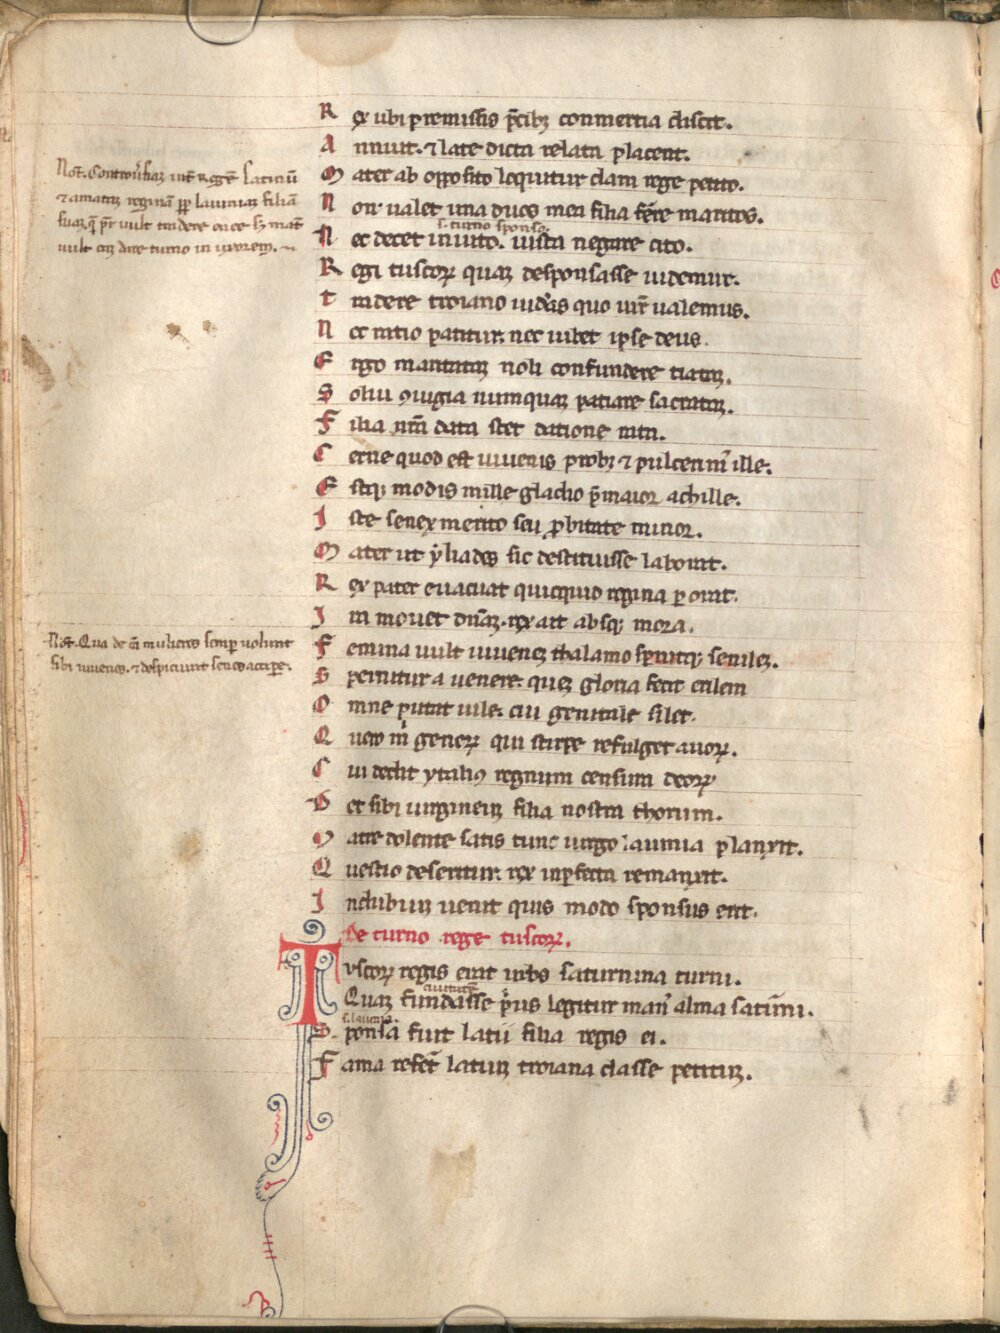 R ex ubi premissis p̄cibꝫ conmertia discit.
A nnuit. ⁊ late dicta relata placent.
M ater ab opposito loquitur clam rege perito.
N on ualet una duos mea filia ferre maritos.
s. turno sponso.
N ec decet inuito. iusta negare cito.
R egi tuscoꝝ quaꝫ desponsasse uidemur.
T radere troiano quo ualemus.
N ec ratio patitur. nec iubet ipse deus.
E rgo maritataꝫ noli confundere nataꝫ.
S olui ꝯiugia numquaꝫ patiare sacrataꝫ.
F ilia nr̄m data stet datione rata.
C erne quod est iuuenis probꝰ ⁊ pulcerrimꝰ ille.
E stqꝫ modis mille gladio maior achille.
I ste senex merito seu ꝓbitate minor.
M ater ut yliades sic destituisse laborat.
R ex pater euacuat quicquid regina perorat.
I ra mouet dn̄aꝫ. rex ait absqꝫ mora.
F emina uult iuueneꝫ thalamo spernitqꝫ senileꝫ.
S pernitur a uenere. queꝫ gloria fecit erilem
O mne putat uile. cui genitale silet.
Q uero geneꝝ qui stirpe refulget auoꝝ.
C ui dedit ytaliꝰ regnum censum decoꝝ
D et sibi uirgineum filia nostra thorum.
M atre dolente satis tunc uirgo lauinia planxit.
Q uestio deseritur. rex inperfecta remanxit.
I n dubium uenit quis modo sponsus erit.
de turno rege tuscoꝝ.
T uscoꝝ regis erat urbs saturnina turni.
ciuitatē
Quaꝫ fundasse p̄us legitur manꝰ alma saturni.
s. lauinia.
S ponsa fuit latii filia regis ei.
F ama refert latiuꝫ troiana classe petituꝫ.
Not̄. Controuersiaꝫ int̄ regeꝫ latinū
⁊ amataꝫ reginā ꝓpter lauiniaꝫ filiā
suaꝫ. qꝫ pr̄ uult tradere enee sꝫ mat̄
uult eaꝫ dare turno in uxorem.
Not̄. Qua de cā mulieres semper uolunt
sibi iuuenes. ⁊ despiciunt senes accipere.